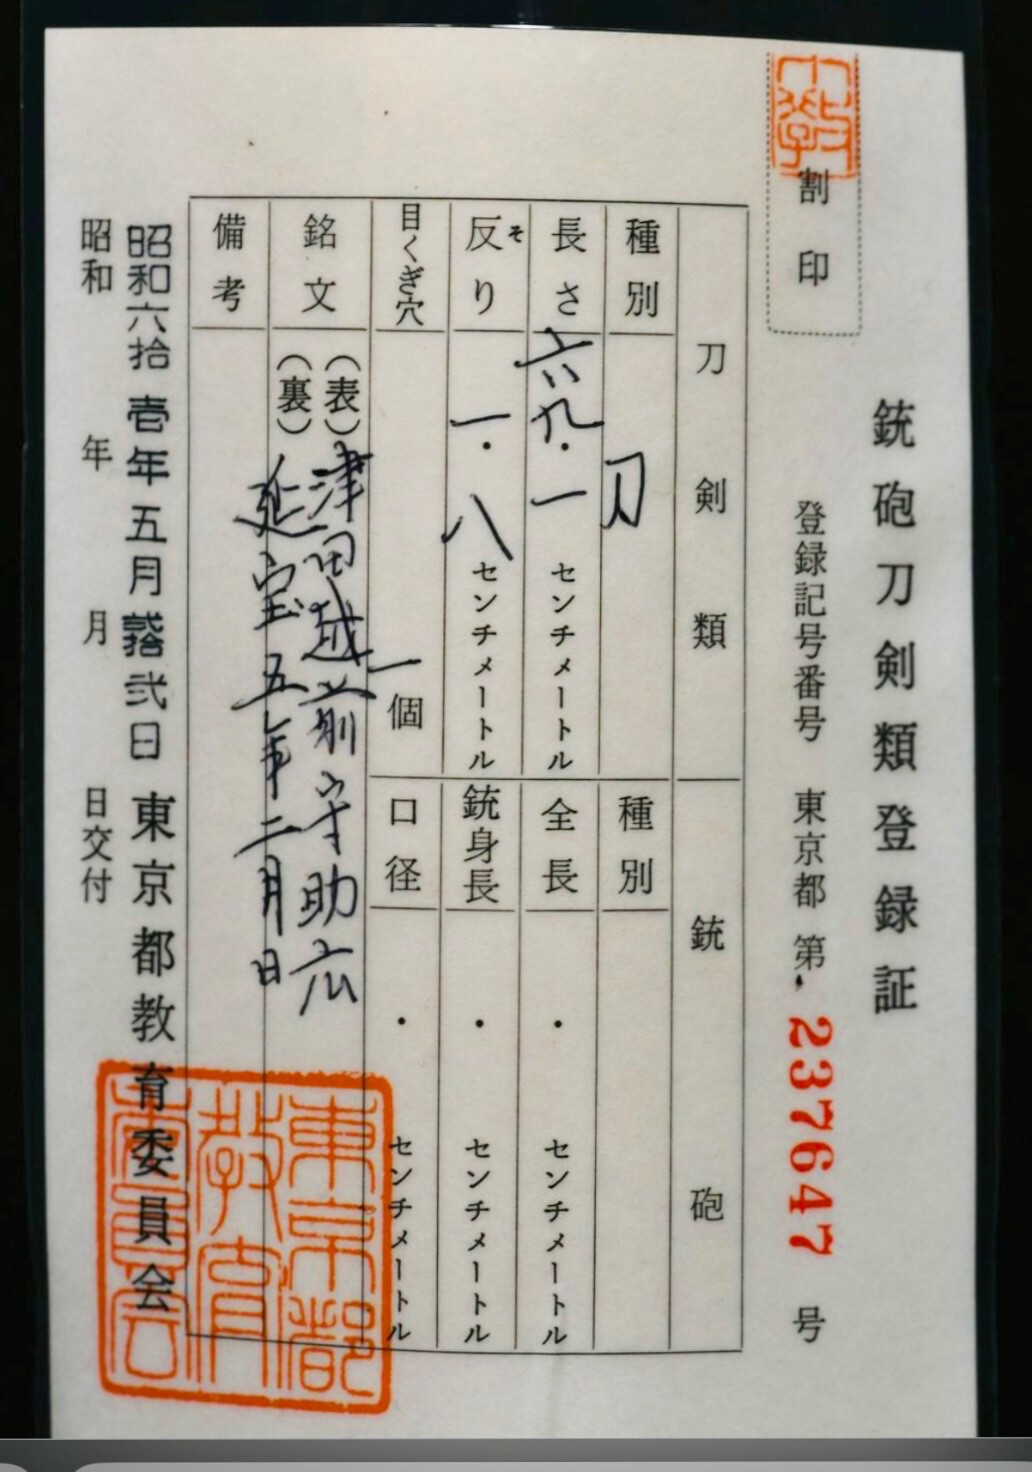 銃砲刀剣類登録証
割印
登録記号番号 東京都 第 237647 号
刀剣類
種別 刀
長さ 六九・一 センチメートル
反り そ 一・八 センチメートル
目くぎ穴 一個
銘文
(表) 津田越前守助広
(裏) 延宝五年二月日
備考
銃砲
種別
全長 ・ センチメートル
銃身長 ・ センチメートル
口径 ・ センチメートル
昭和六拾壱年五月弐拾弐日 東京都教育委員会
昭和 年 月 日交付
東京都教育委員会